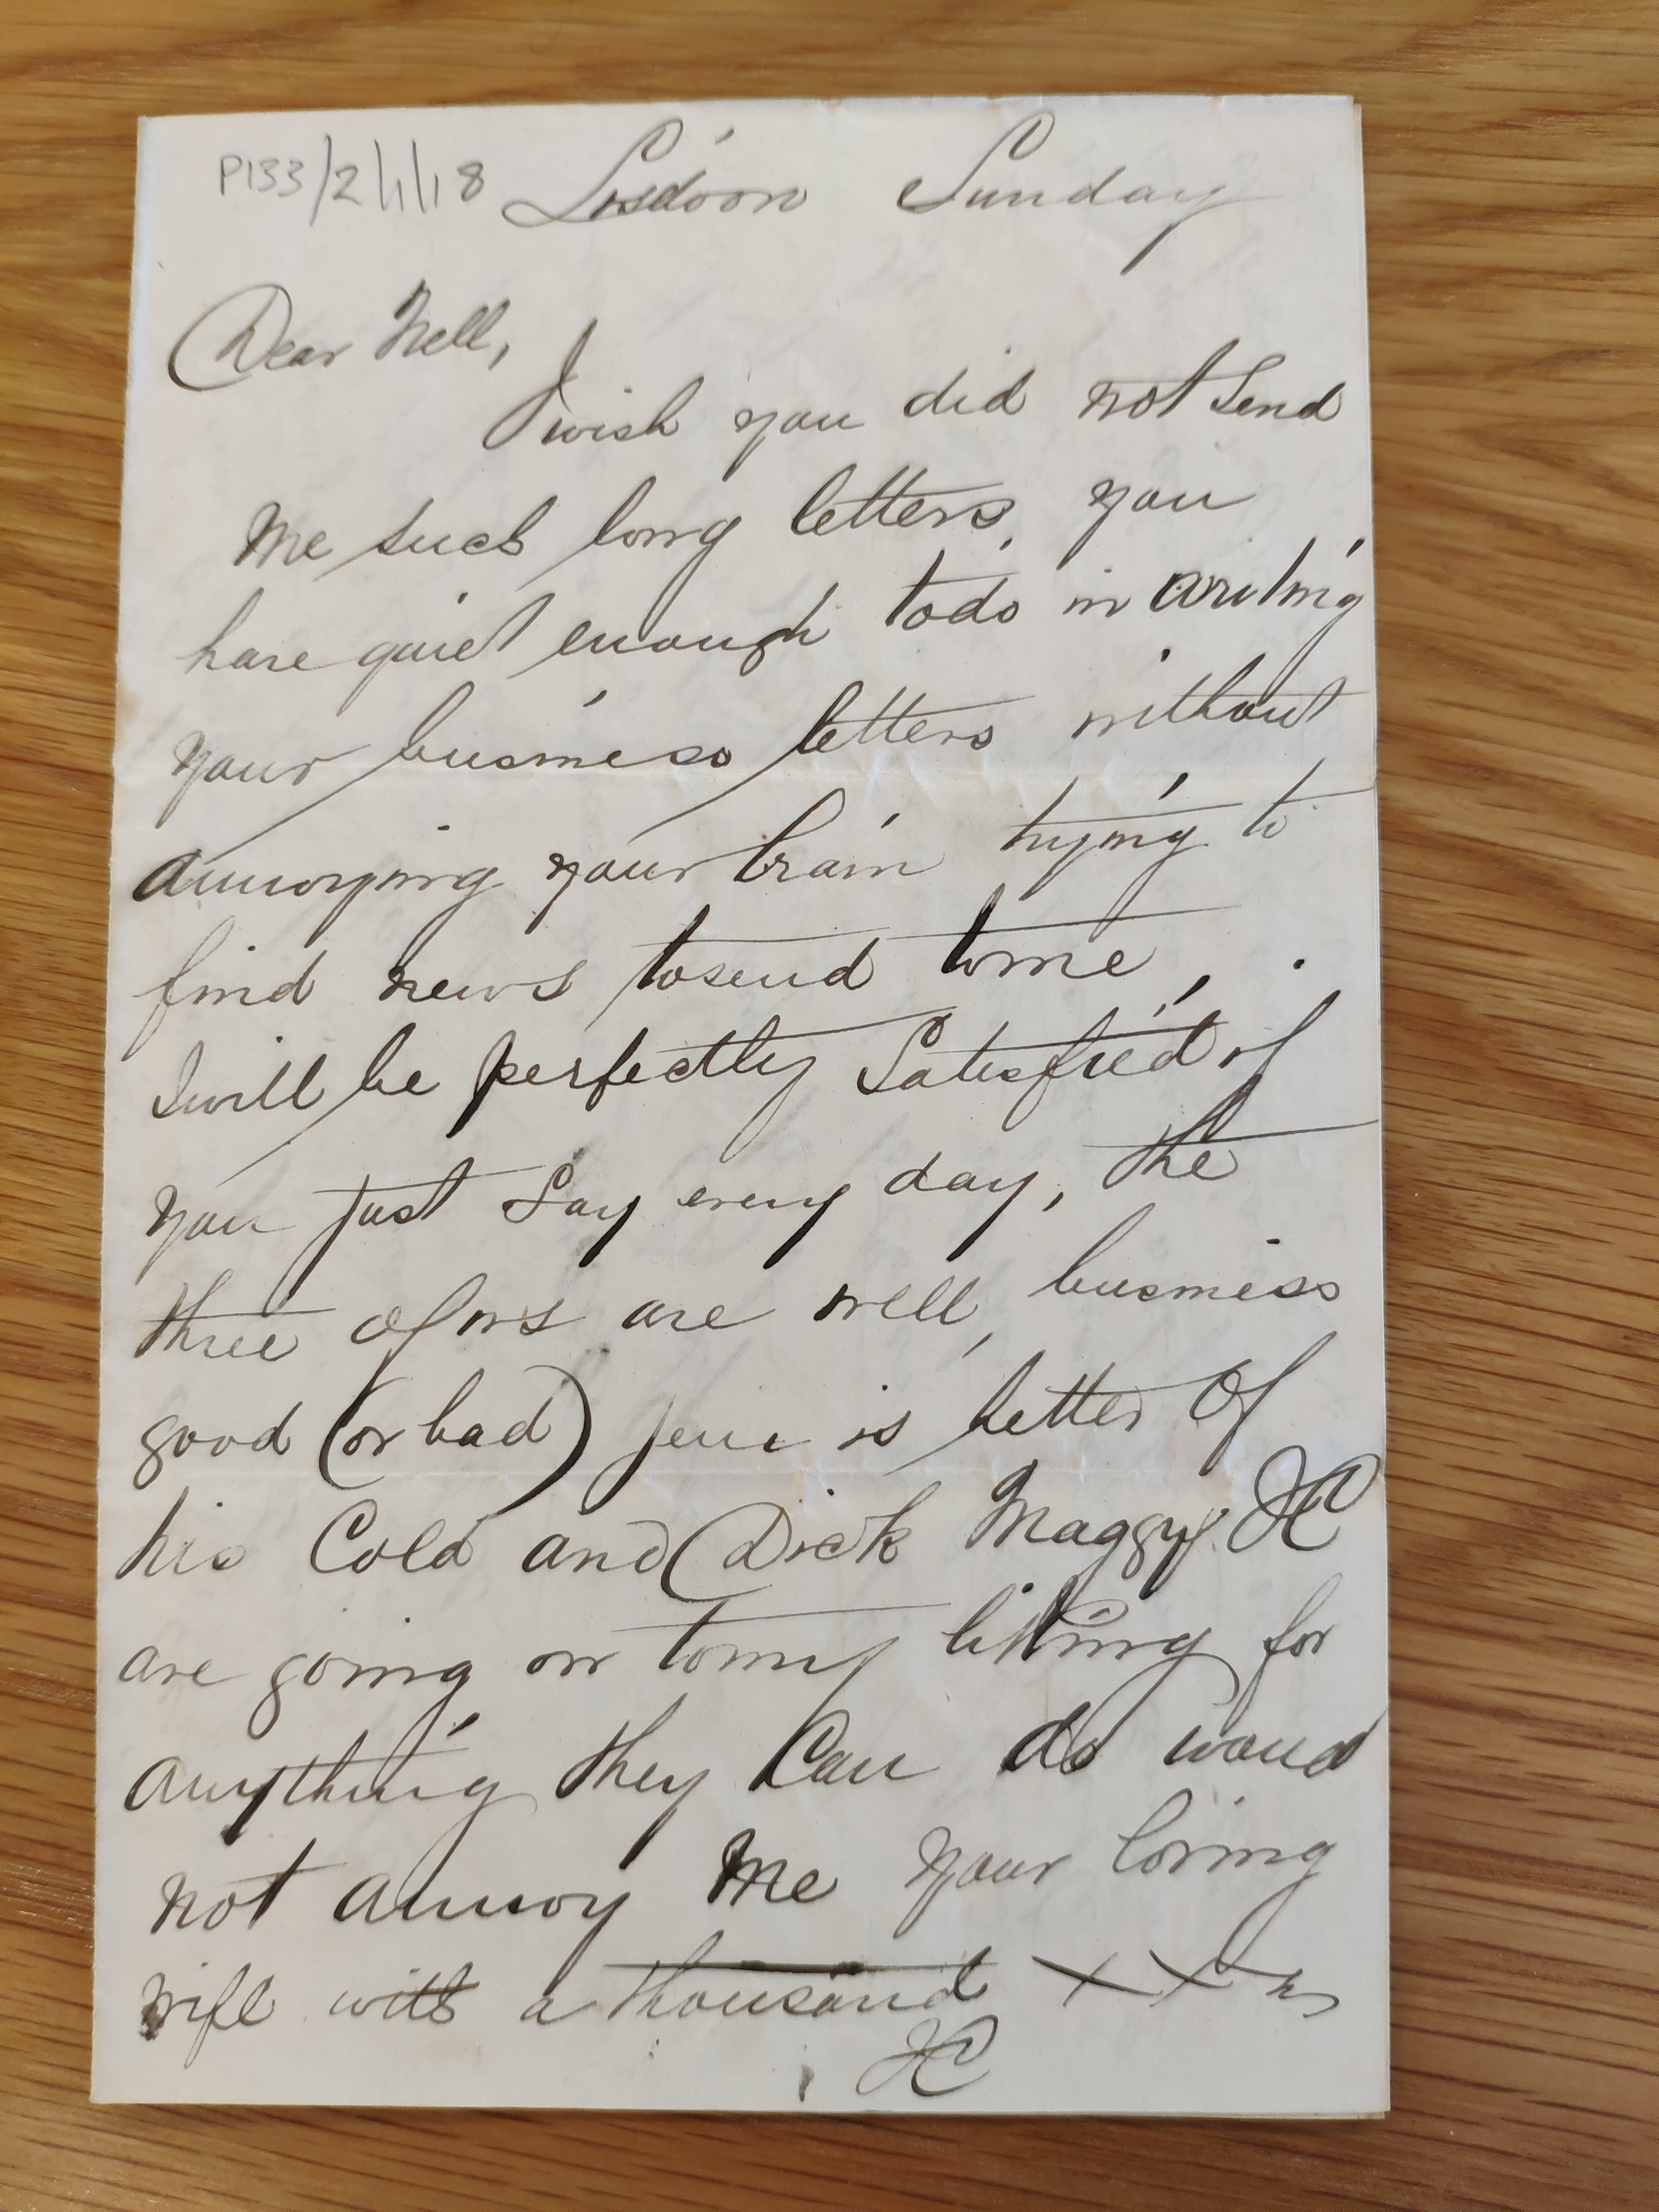 P133/2/1/18 Lisdoon Sunday
Dear Nell,
I wish you did not send
me such long letters, you
have quiet enough to do in writing
your business letters without
annoying your brain trying to
find news to send to me,
I will be perfectly satisfied if
you just say every day, the
three of us are well, business
good (or bad) is better of
his cold and Dick Maggy &c
are going on to my liking for
anything they can do woud
not annoy me your loving
wife with a thousand xxxs